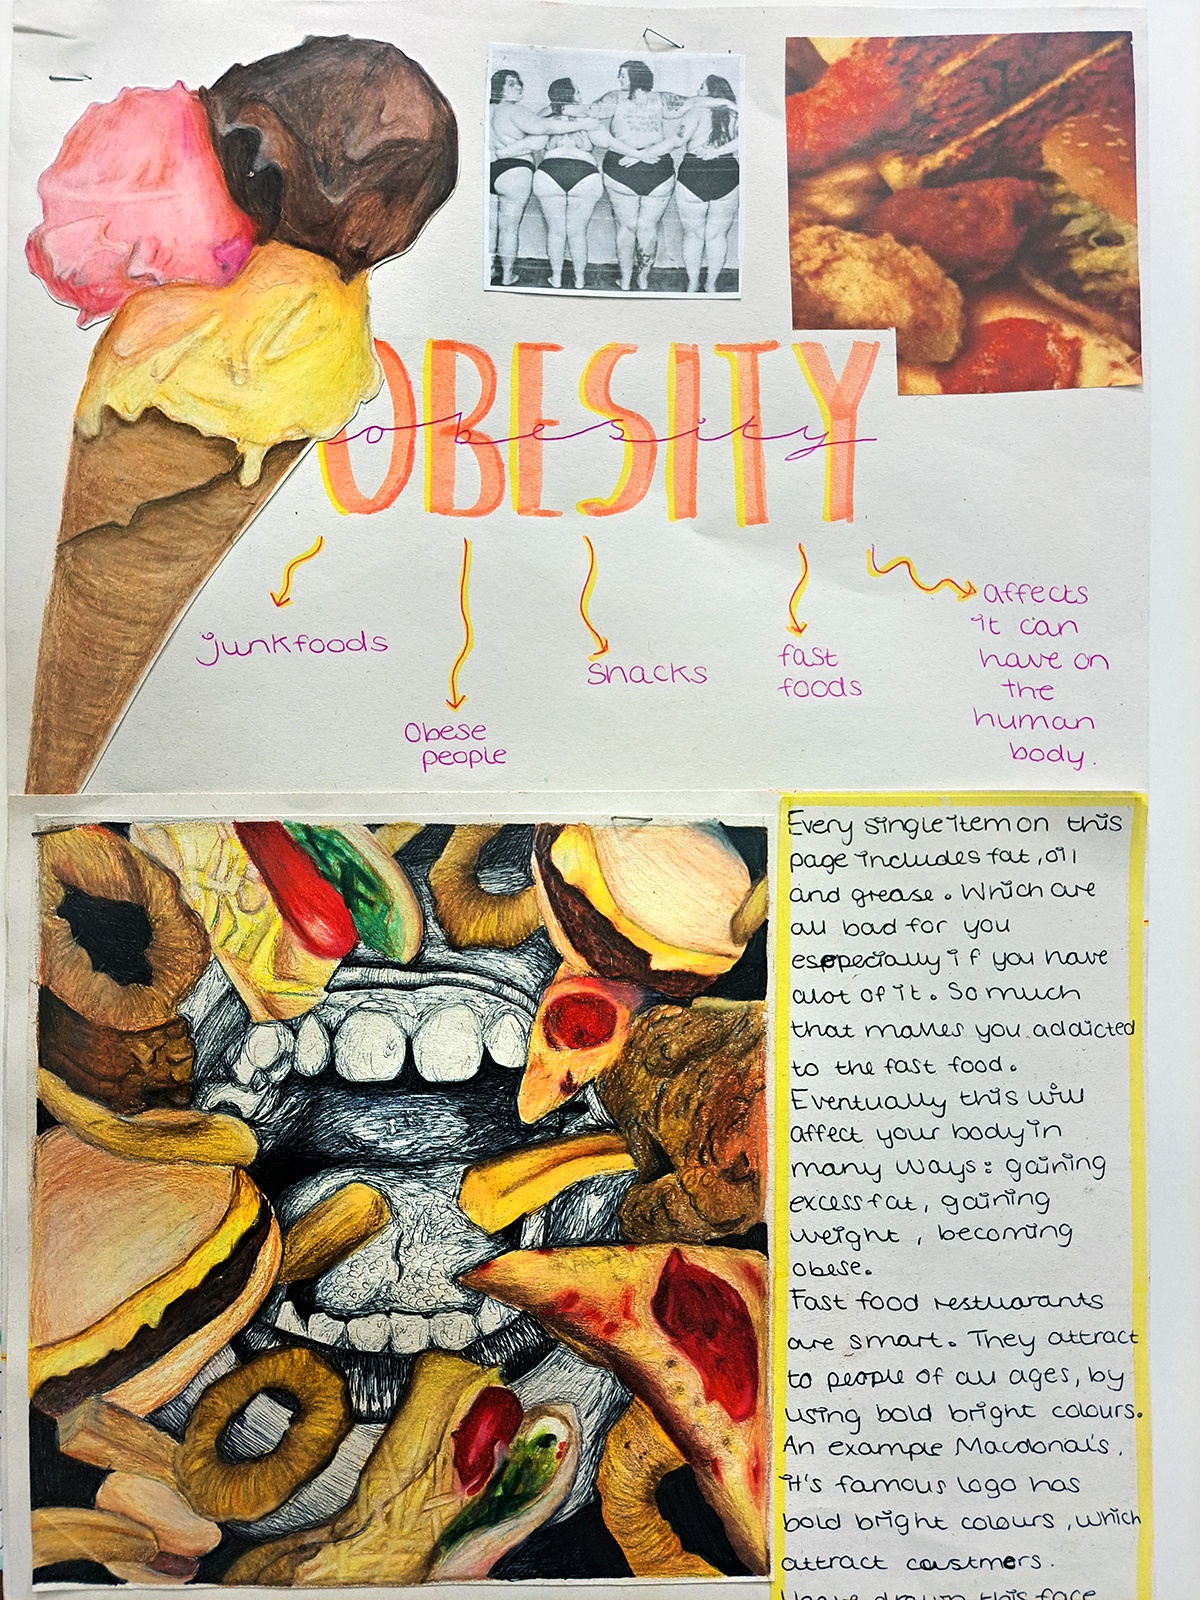 OBESITY
obesity
junkfoods
Obese
people
snacks
fast
foods
affects
it can
have on
the
human
body.
Every single item on this
page includes fat, oil
and grease. Which are
all bad for you
especially if you have
alot of it. So much
that makes you addicted
to the fast food.
Eventually this will
affect your body in
many ways: gaining
excess fat, gaining
weight, becoming
obese.
Fast food restuarants
are smart. They attract
to people of all ages, by
using bold bright colours.
An example Macdonal's,
it's famous logo has
bold bright colours, which
attract coustmers.
I have drawn this face